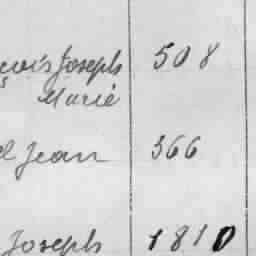 çois Joseph 508
Marie
el Jean 366
Joseph 1810